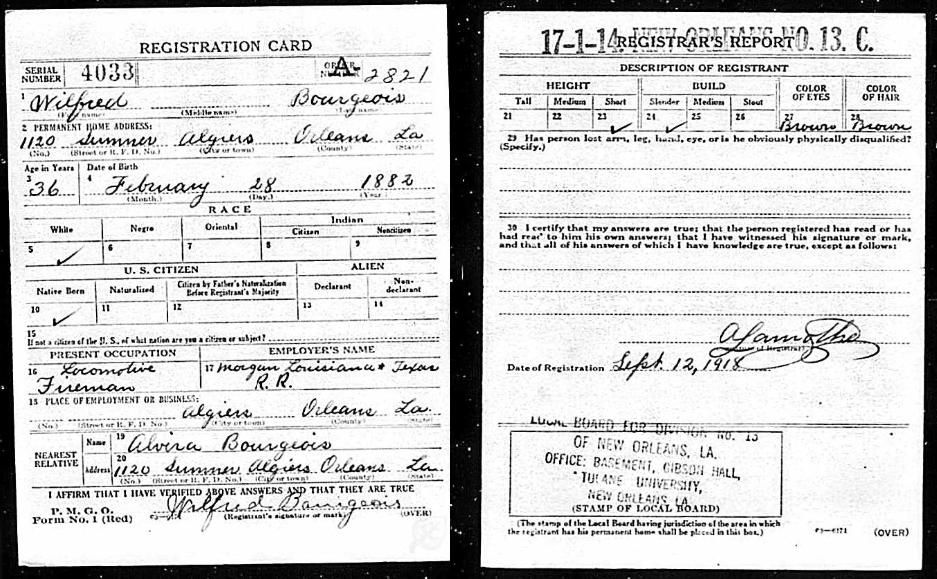 REGISTRATION CARD
SERIAL NUMBER 4033
ORDER NUMBER A 2821
1 Wilfred Bourgeois
(First name) (Middle name) (Last name)
2 PERMANENT HOME ADDRESS:
1120 Sumner Algiers Orleans La
(No.) (Street or R. F. D. No.) (City or town) (County) (State)
Age in Years Date of Birth
3 36 4 February 28 1882
(Month.) (Day.) (Year.)
RACE
White Negro Oriental Indian
Citizen Noncitizen
5 ✓ 6 7 8 9
U. S. CITIZEN ALIEN
Native Born Naturalized Citizen by Father's Naturalization Before Registrant's Majority Declarant Non-declarant
10 ✓ 11 12 13 14
15
If not a citizen of the U. S., of what nation are you a citizen or subject?
PRESENT OCCUPATION EMPLOYER'S NAME
16 Locomotive Fireman 17 Morgan Louisiana & Texas R. R.
18 PLACE OF EMPLOYMENT OR BUSINESS:
Algiers Orleans La.
(No.) (Street or R. F. D. No.) (City or town) (County) (State)
NEAREST RELATIVE
Name 19 Alvira Bourgeois
Address 20 1120 Sumner Algiers Orleans La.
(No.) (Street or R. F. D. No.) (City or town) (County) (State)
I AFFIRM THAT I HAVE VERIFIED ABOVE ANSWERS AND THAT THEY ARE TRUE
P. M. G. O.
Form No. 1 (Red) Wilfred Bourgeois
(Registrant's signature or mark) (OVER)
17-1-14. NEW ORLEANS NO. 13. C.
REGISTRAR'S REPORT
DESCRIPTION OF REGISTRANT
HEIGHT BUILD COLOR OF EYES COLOR OF HAIR
Tall Medium Short Slender Medium Stout
21 22 23 ✓ 24 ✓ 25 26 27 Brown 28 Brown
29 Has person lost arm, leg, hand, eye, or is he obviously physically disqualified?
(Specify.)
30 I certify that my answers are true; that the person registered has read or has
had read to him his own answers; that I have witnessed his signature or mark,
and that all of his answers of which I have knowledge are true, except as follows:
(Signature of Registrar)
Date of Registration Sept. 12, 1918
LOCAL BOARD FOR DIVISION NO. 13
OF NEW ORLEANS, LA.
OFFICE: BASEMENT, GIBSON HALL,
TULANE UNIVERSITY,
NEW ORLEANS LA.
(STAMP OF LOCAL BOARD)
(The stamp of the Local Board having jurisdiction of the area in which
the registrant has his permanent home shall be placed in this box.)
(OVER)